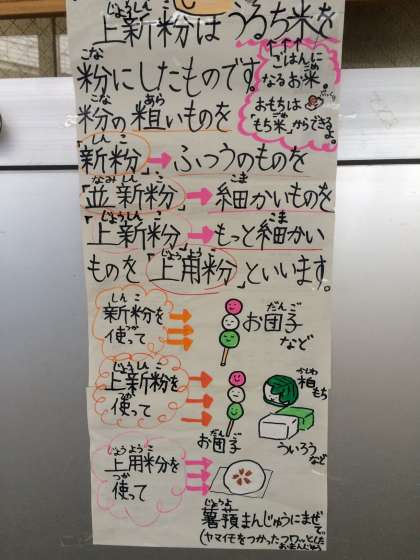 上新粉はうるち米を
粉にしたものです。
粉の粗いものを
「新粉」→ふつうのものを
「並新粉」→細かいものを
「上新粉」→もっと細かい
ものを「上用粉」といいます。
ごはんに
なるお米。
おもちは
"もち米"からできるよ。
新粉を
使って
お団子
など
上新粉を
使って
お団子
柏もち
ういろう
など
上用粉を
使って
薯預まんじゅうにまぜて
(ヤマイモをつかったフワッとした
おまんじゅう)